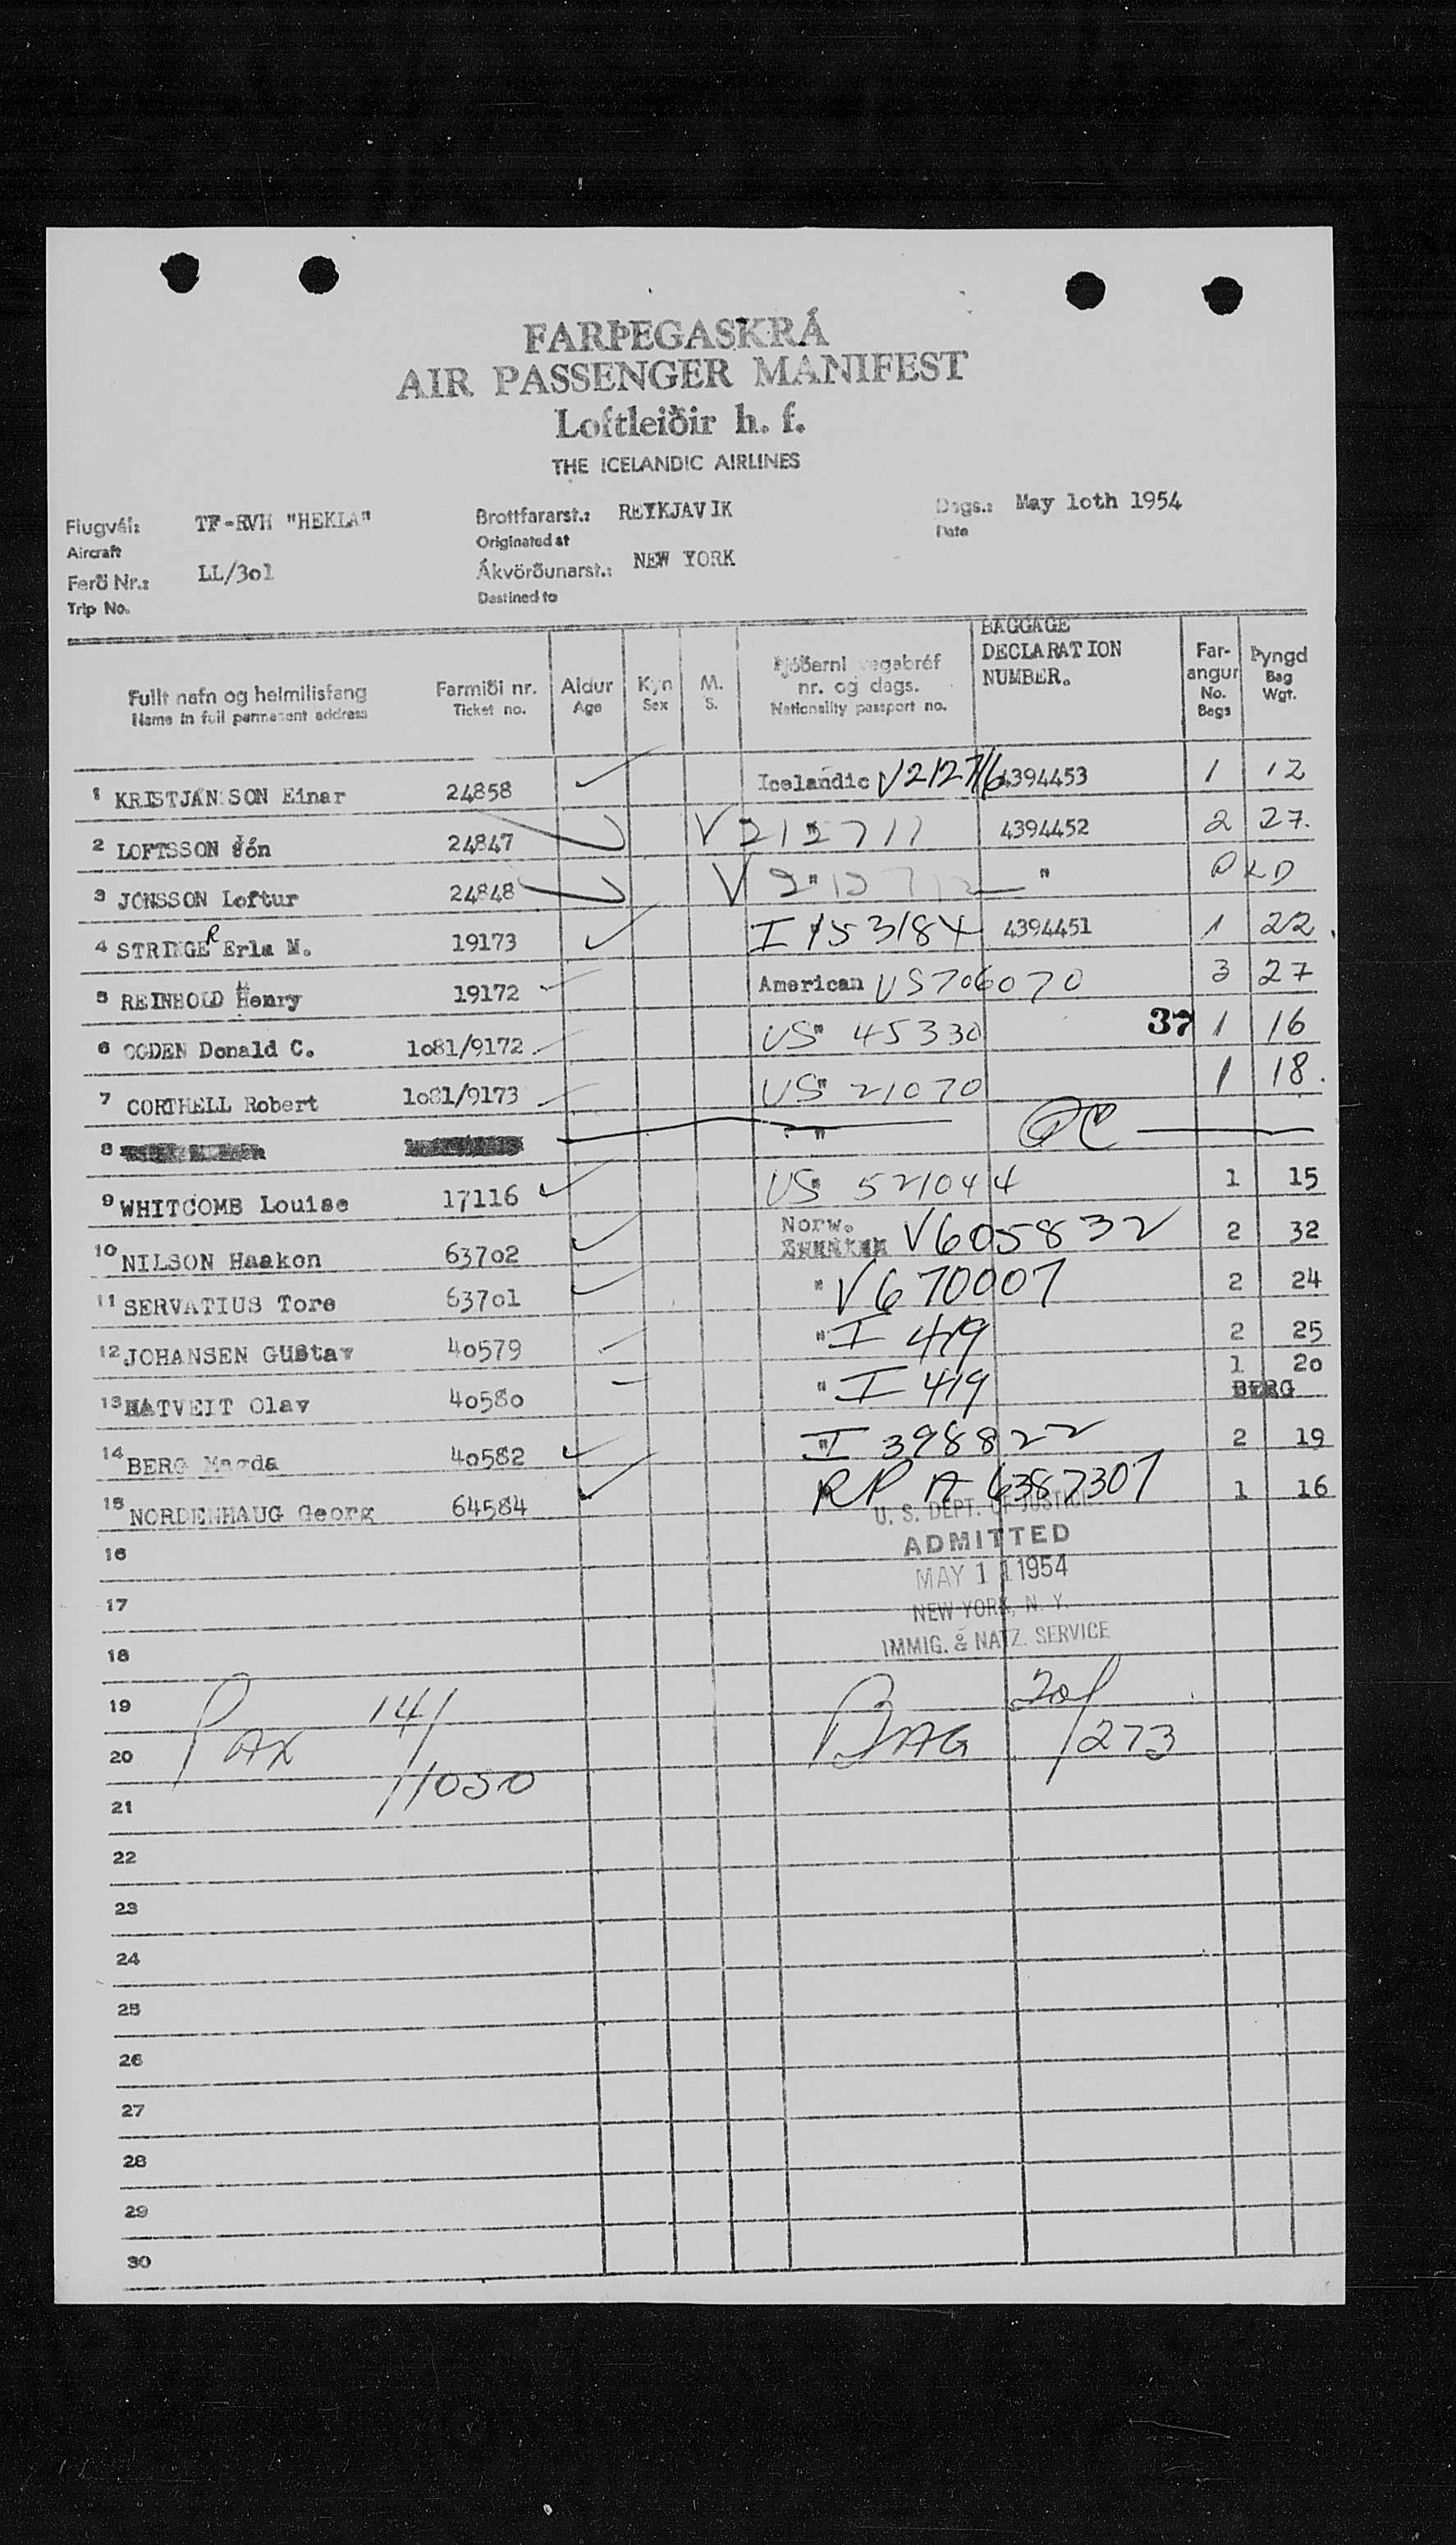 FARÞEGASKRÁ
AIR PASSENGER MANIFEST
Loftleiðir h. f.
THE ICELANDIC AIRLINES
Flugvél: TF-RVH "HEKLA" Brottfararst.: REYKJAVIK Dags.: May 1oth 1954
Aircraft Originated at Date
Ferð Nr.: LL/3o1 Ákvörðunarst.: NEW YORK
Trip No. Destined to
Fullt nafn og heimilisfang Farmiði nr. Aldur Kyn M. Þjóðerni vegabréf nr. og dags. BAGGAGE DECLARATION NUMBER. Far-angur Þyngd
Name in full permanent address Ticket no. Age Sex S. Nationality passport no. No. Bags Bag Wgt.
1 KRISTJANSSON Einar 24858 Icelandic V212716 4394453 1 12
2 LOFTSSON Jón 24847 V " 212711 4394452 2 27.
3 JONSSON Loftur 24848 V " 212712 "
4 STRINGER Erla M. 19173 I 153184 4394451 1 22.
5 REINHOLD Henry 19172 American US706070 3 27
6 OGDEN Donald C. 1o81/9172 US " 45330 37 1 16
7 CORTHELL Robert 1o81/9173 US " 21070 1 18.
8 "
9 WHITCOMB Louise 17116 US " 521044 1 15
10 NILSON Haakon 637o2 Norw. V605832 2 32
11 SERVATIUS Tore 637o1 " V670007 2 24
12 JOHANSEN GUStav 4o579 " I 419 2 25
13 HATVEIT Olav 4o58o " I 419 1 2o
BERG
14 BERG Magda 4o582 " I 398822 2 19
15 NORDENHAUG Georg 64584 " RP A 6387307 1 16
U. S. DEPT. OF JUSTICE
16 ADMITTED
MAY 11 1954
17 NEW YORK, N. Y.
18 IMMIG. & NATZ. SERVICE
19
20 PAX 14/1050 BAG 20/273
21
22
23
24
25
26
27
28
29
30